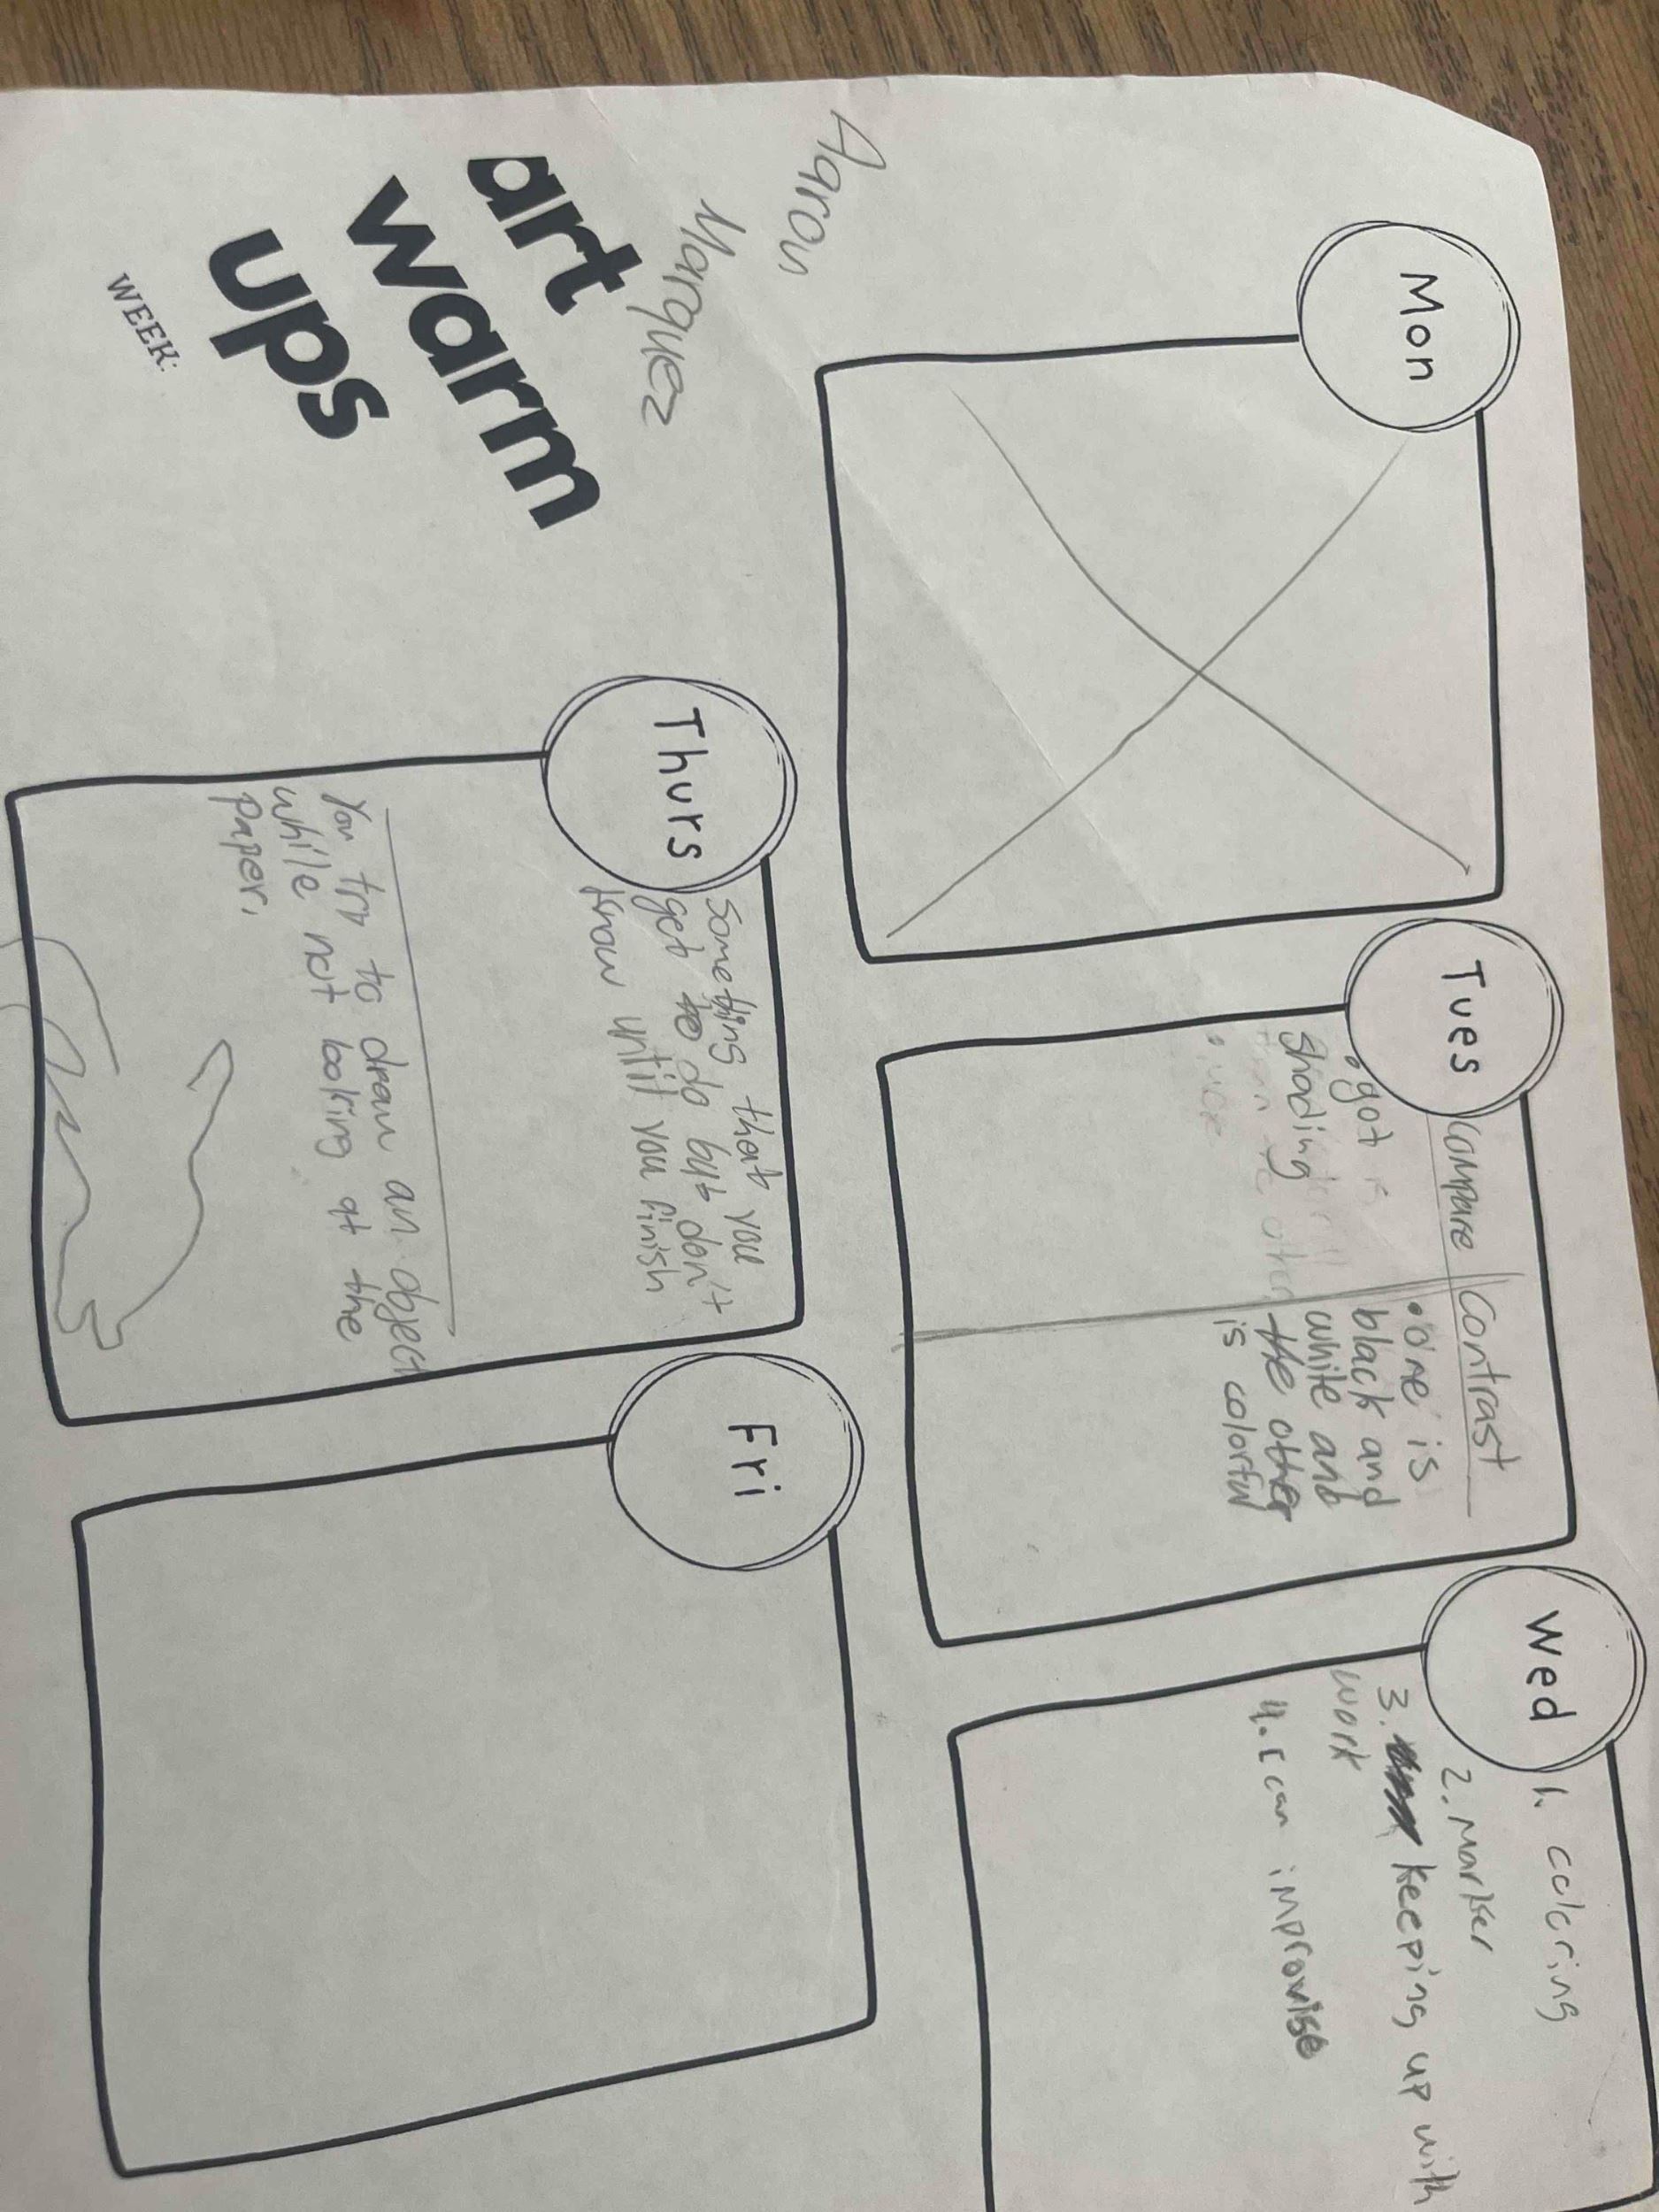 Aaron
Marquez
art
warm
ups
WEEK:
Mon
Tues
compare
contrast
• got
shading
• one is
black and
white and
the other
is colorful
Wed
1. coloring
2. Marker
3. keeping up with
work
4. I can improvise
Thurs
something that you
get to do but don't
know until you finish
You try to draw an object
while not looking at the
paper,
Fri